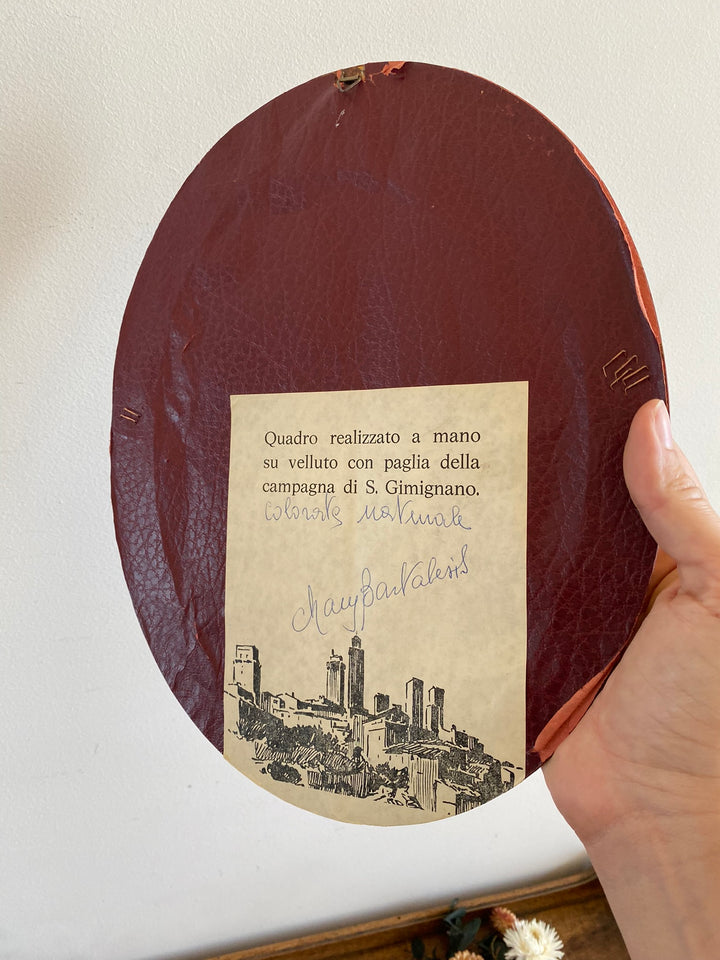 Quadro realizzato a mano
su velluto con paglia della
campagna di S. Gimignano.
colorata naturale